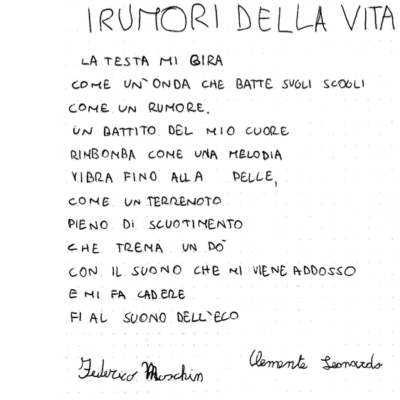 I RUMORI DELLA VITA
LA TESTA MI GIRA
COME UN'ONDA CHE BATTE SUGLI SCOGLI
COME UN RUMORE.
UN BATTITO DEL MIO CUORE
RINBONBA COME UNA MELODIA
VIBRA FINO ALLA PELLE,
COME UN TERREMOTO
PIENO DI SCUOTIMENTO
CHE TREMA UN PO'
CON IL SUONO CHE MI VIENE ADDOSSO
E MI FA CADERE
FI AL SUONO DELL'ECO
Federico Moschin
Clemente Leonardo